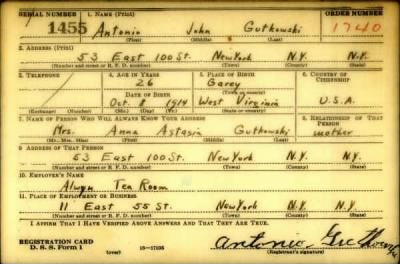 SERIAL NUMBER 1. NAME (Print) ORDER NUMBER
1455 Antonio John Gutkowski 1740
(First) (Middle) (Last)
2. ADDRESS (Print)
53 East 100 St. New York N.Y. N.Y.
(Number and street or R. F. D. number) (Town) (County) (State)
3. TELEPHONE 4. AGE IN YEARS 5. PLACE OF BIRTH 6. COUNTRY OF CITIZENSHIP
26 Garey
DATE OF BIRTH
Oct. 8 1914 West Virginia U.S.A.
(Exchange) (Number) (Mo.) (Day) (Yr.) (State or country)
7. NAME OF PERSON WHO WILL ALWAYS KNOW YOUR ADDRESS 8. RELATIONSHIP OF THAT PERSON
Mrs. Anna Astasia Gutkowski mother
(Mr., Mrs., Miss) (First) (Middle) (Last)
9. ADDRESS OF THAT PERSON
53 East 100 St. New York N.Y. N.Y.
(Number and street or R. F. D. number) (Town) (County) (State)
10. EMPLOYER'S NAME
Alwyn Tea Room
11. PLACE OF EMPLOYMENT OR BUSINESS
11 East 55 St. New York N.Y. N.Y.
(Number and street or R. F. D. number) (Town) (County) (State)
I AFFIRM THAT I HAVE VERIFIED ABOVE ANSWERS AND THAT THEY ARE TRUE.
REGISTRATION CARD
D. S. S. Form 1 (over) 16—17105 Antonio
(Registrant's signature)